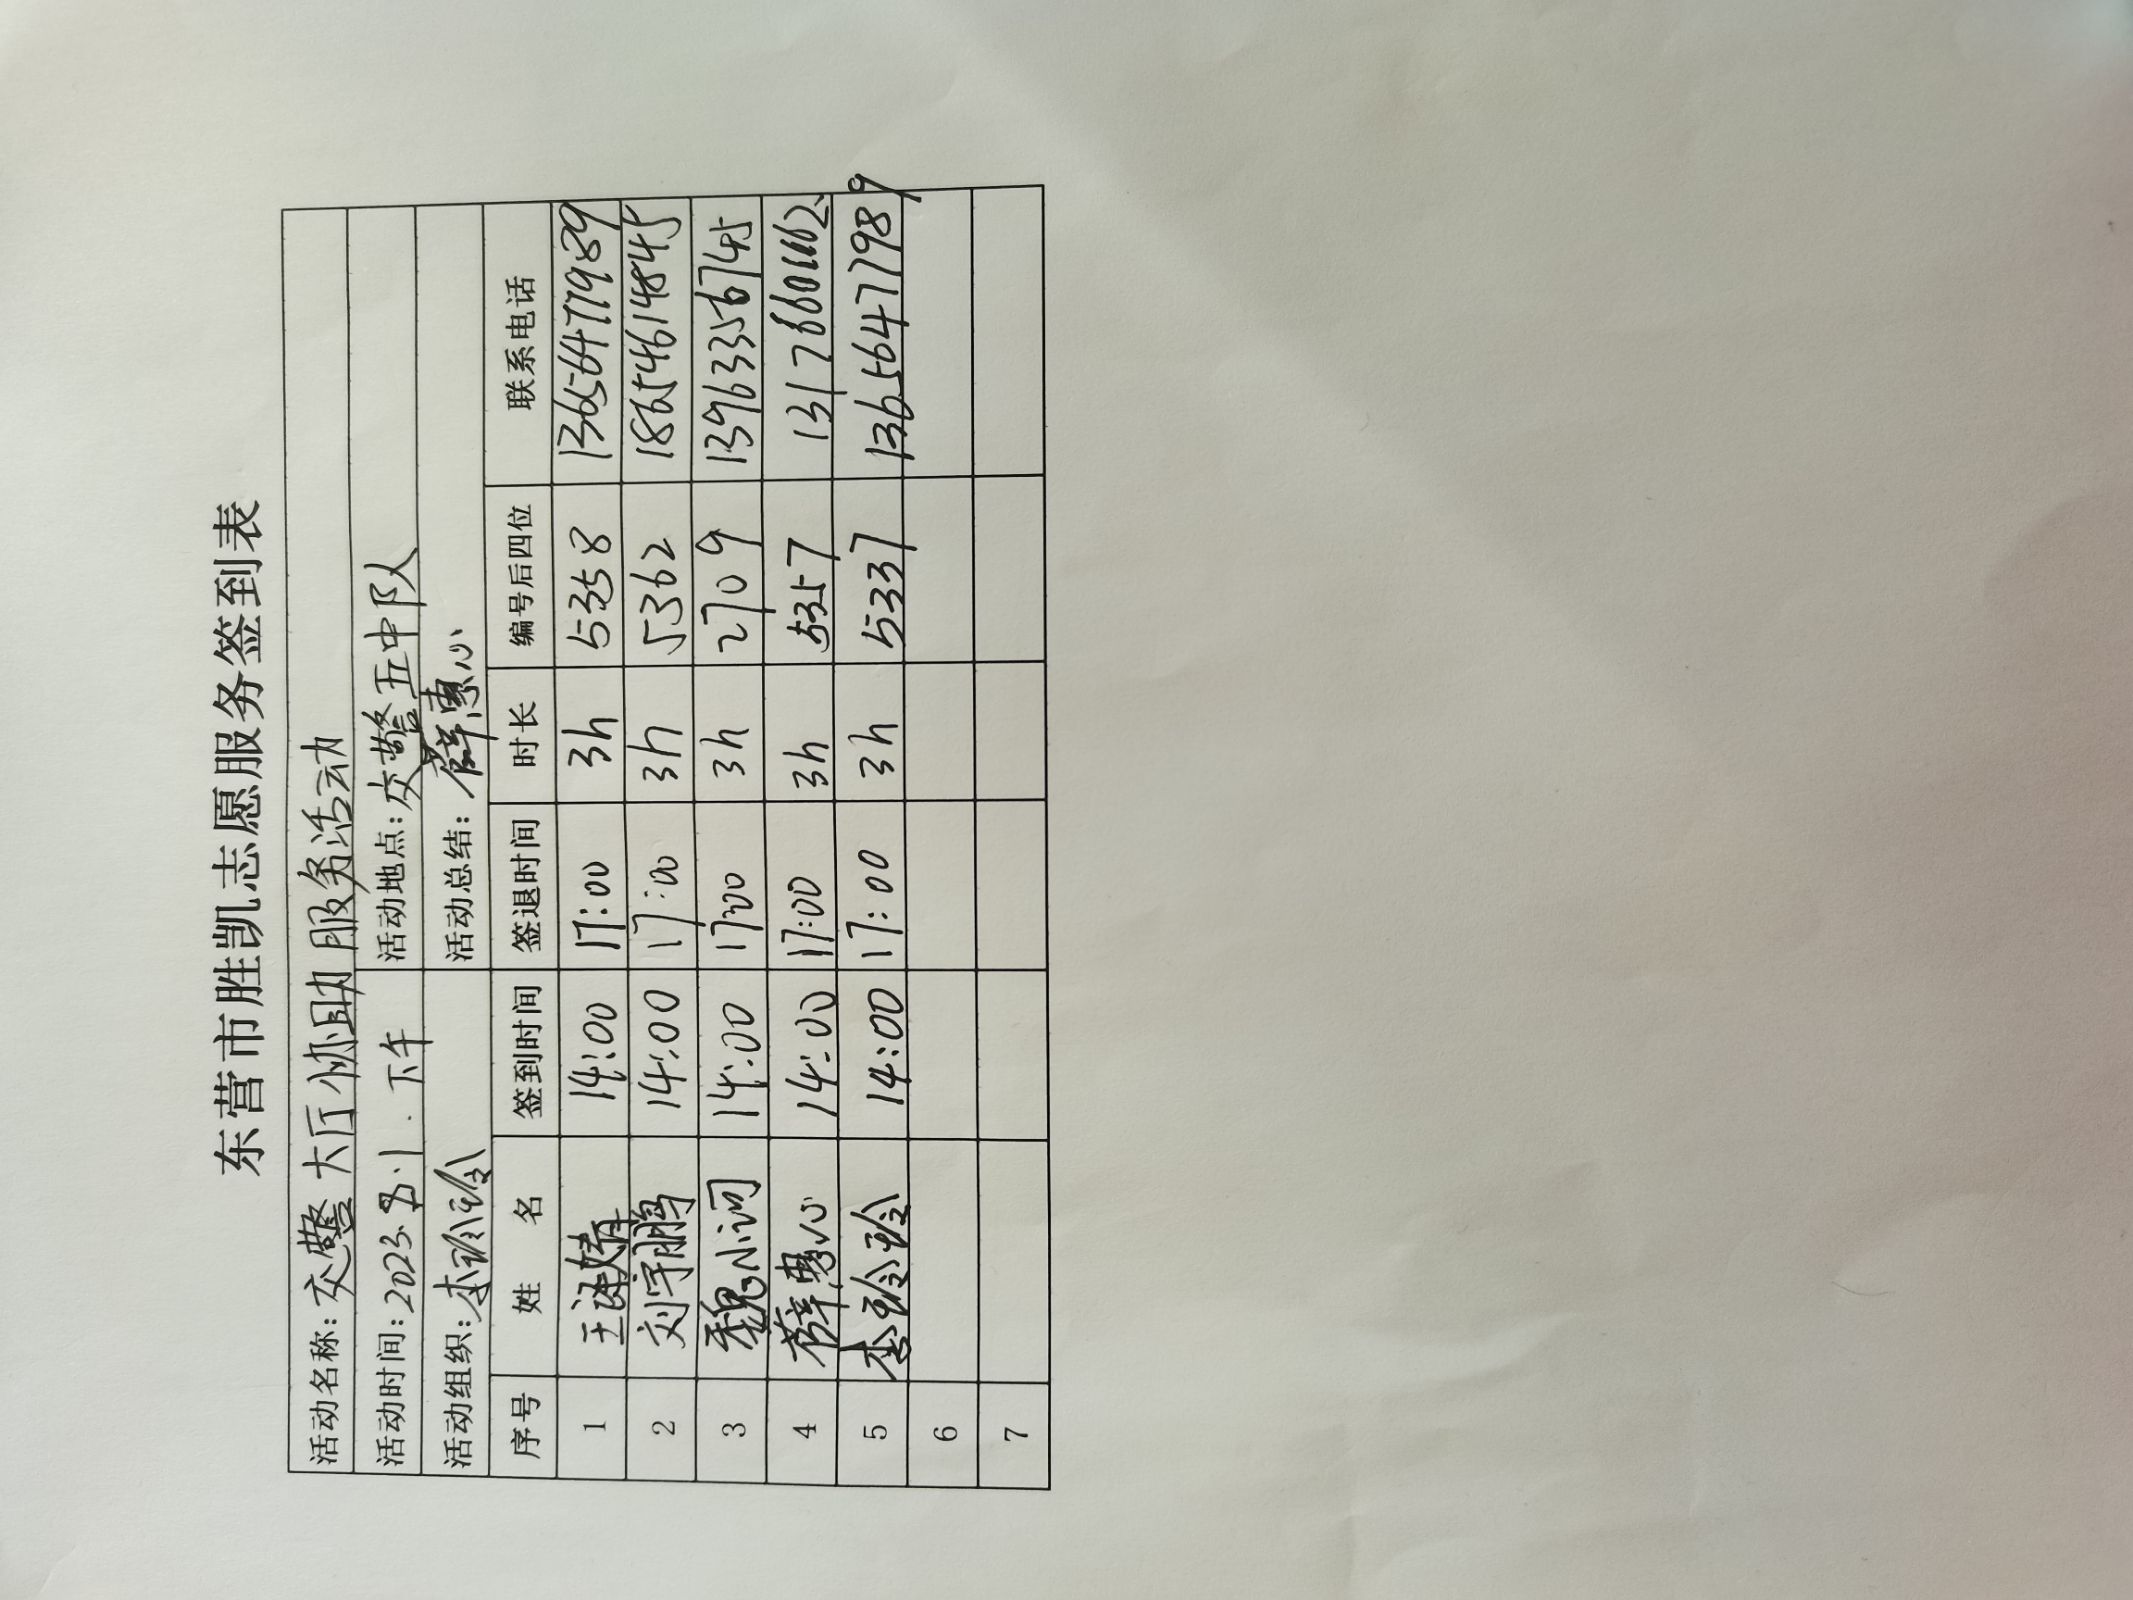 东营市胜凯志愿服务签到表
活动名称:交警大厅协助服务活动
活动时间:2023.8.1.下午 活动地点:交警五中队
活动组织:李玲玲 活动总结:薛惠心
序号 姓 名 签到时间 签退时间 时长 编号后四位 联系电话
1 14:00 17:00 3h 5358 13656477989
2 刘宇鹏 14:00 17:00 3h 5362 18654614845
3 魏小词 14:00 17:00 3h 2709 13963356745
4 薛惠心 14:00 17:00 3h 5357
5 李玲玲 14:00 17:00 3h 5337 13656477989
6
7